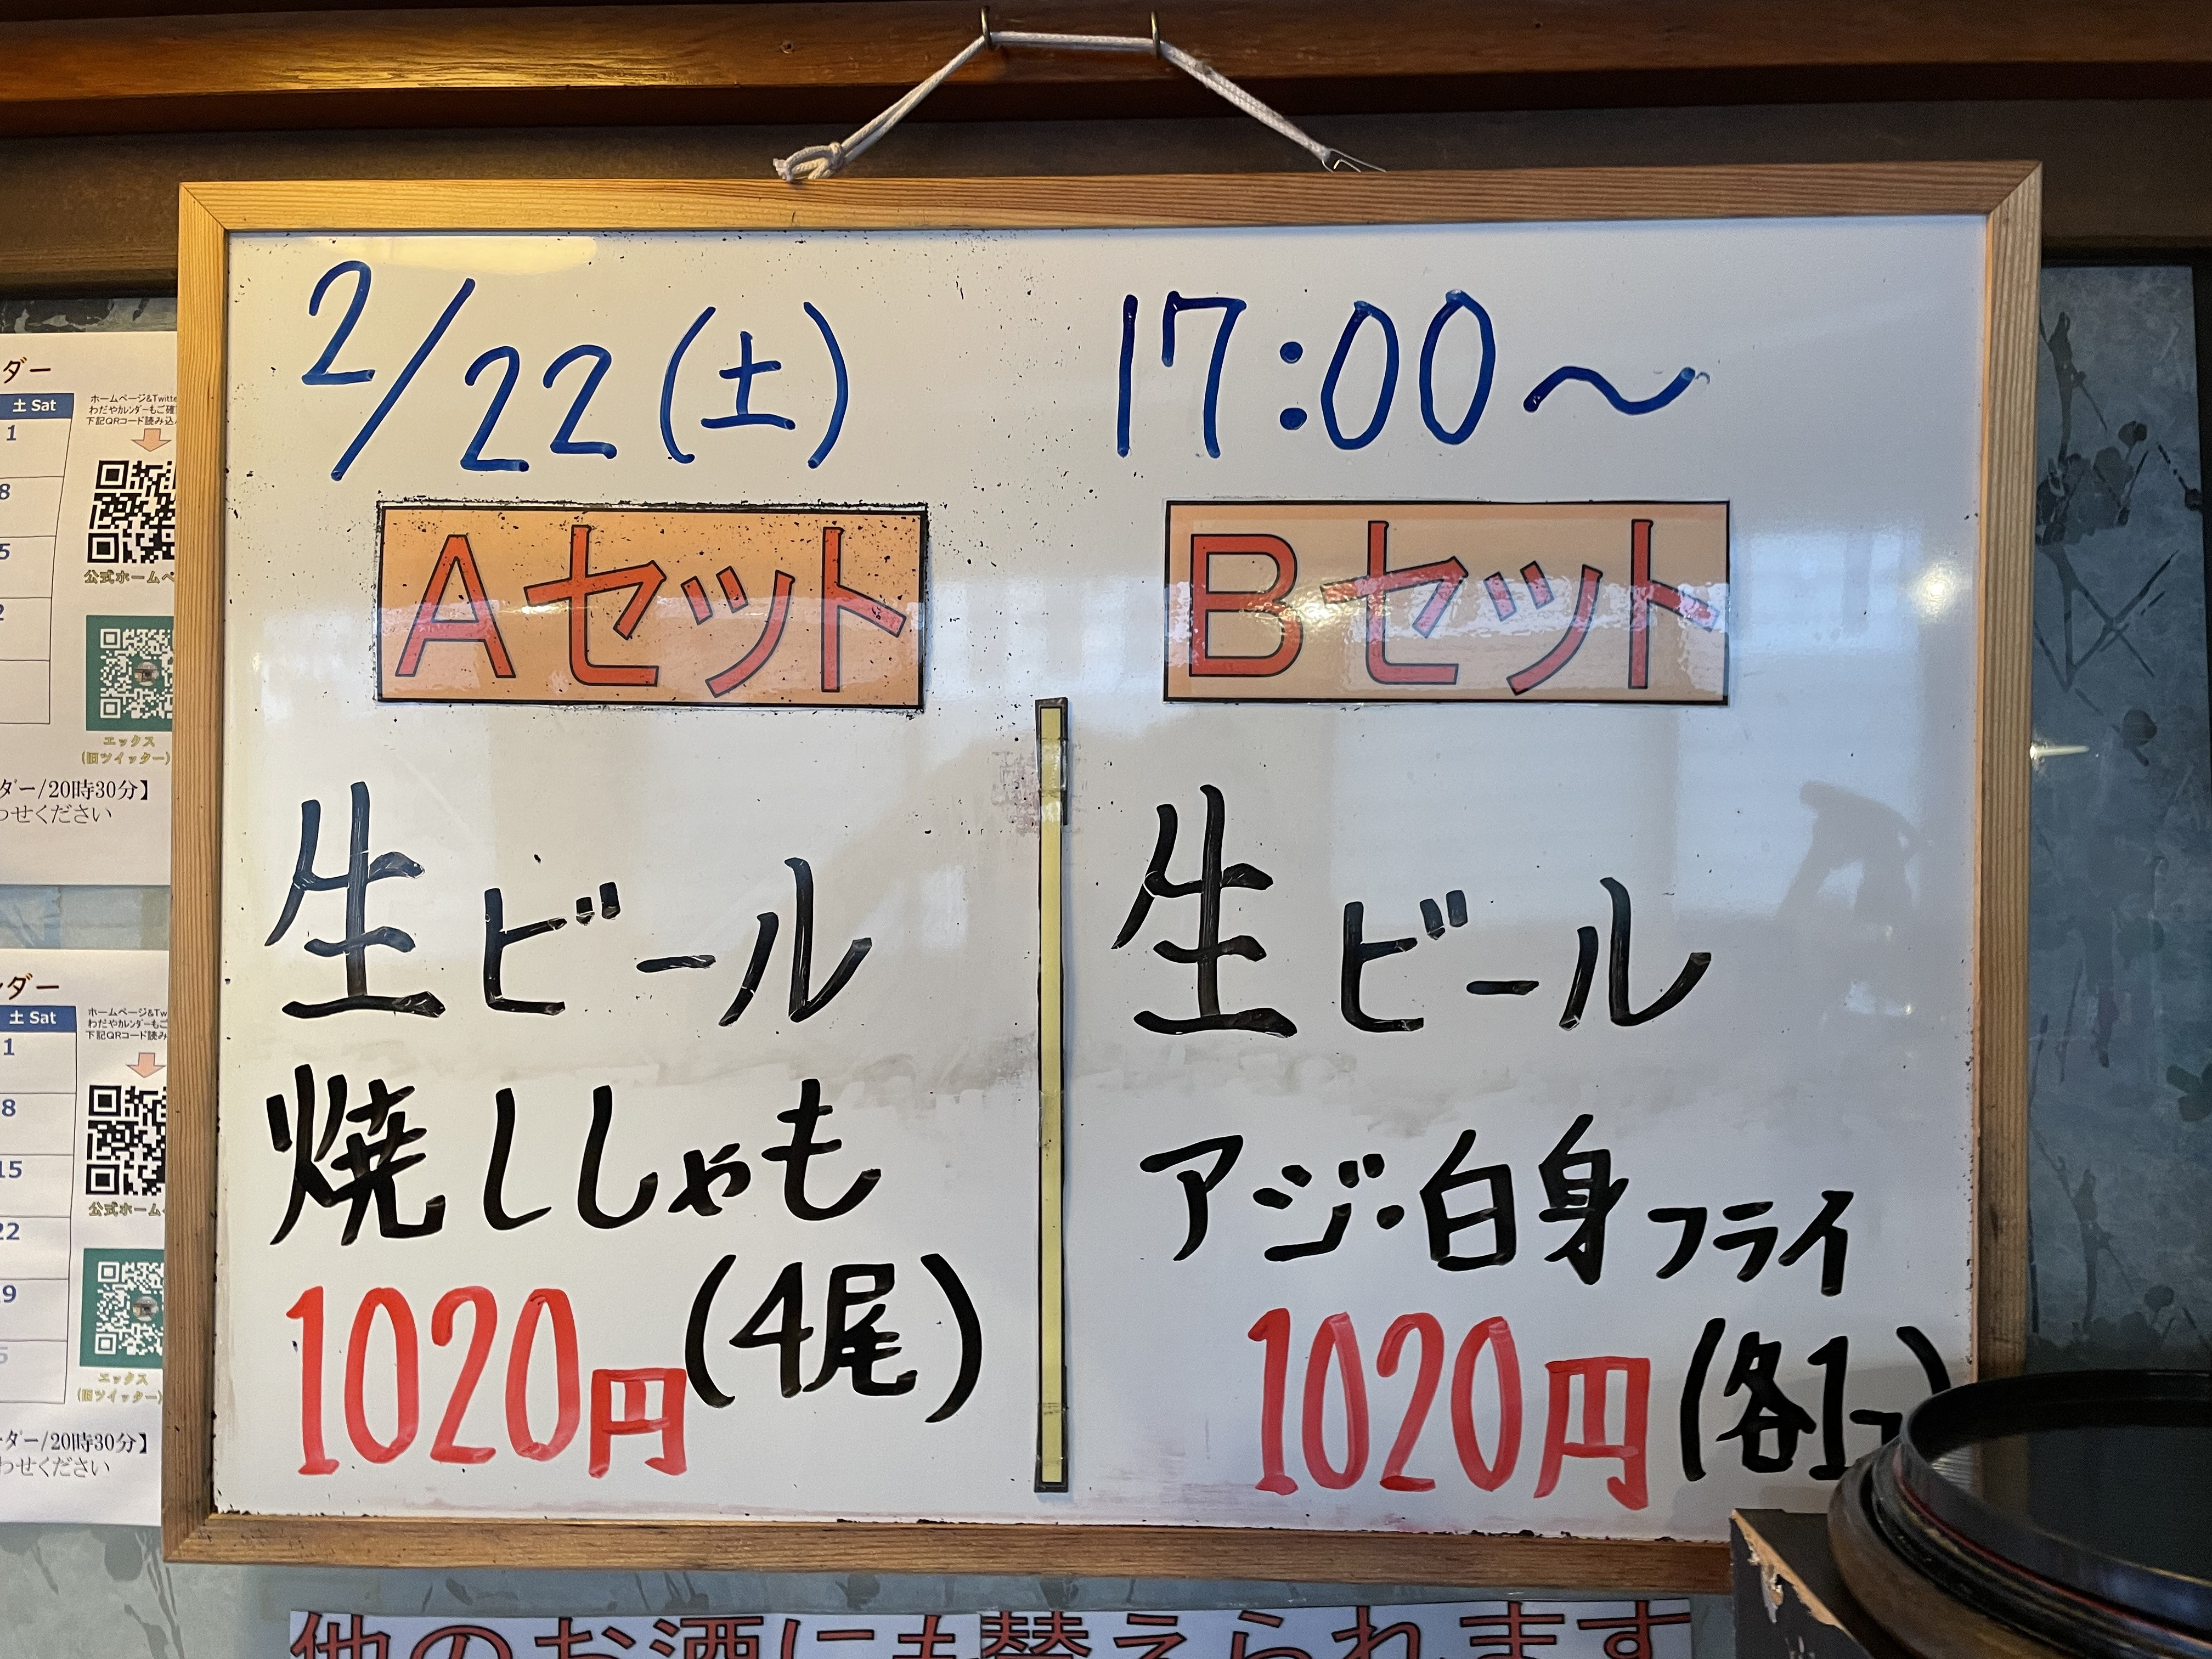 2/22(土) 17:00〜
Aセット
生ビール
焼ししゃも
(4尾)
1020円
Bセット
生ビール
アジ・白身フライ
1020円(各1
他のお酒にも替えられます
ダー
土 Sat
1
8
5
2
ホームページ&Twitte
わだやカレンダーもご確
下記QRコード読み込
公式ホームペ
エックス
(旧ツイッター)
ダー/20時30分】
わせください
ンダー
土 Sat
1
8
15
22
9
5
ホームページ&Tw
わだやカレンダーもご
下記QRコード読み
公式ホーム
エックス
(旧ツイッター)
ーダー/20時30分】
わせください